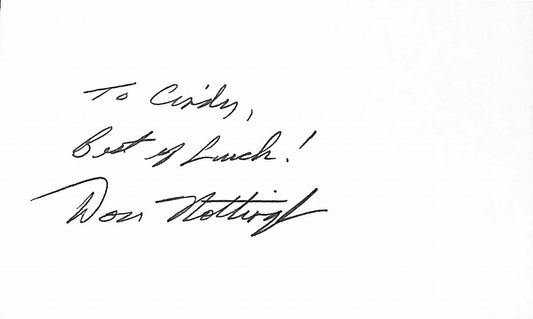 To Cindy,
Best of Luck!
Don Nottingh